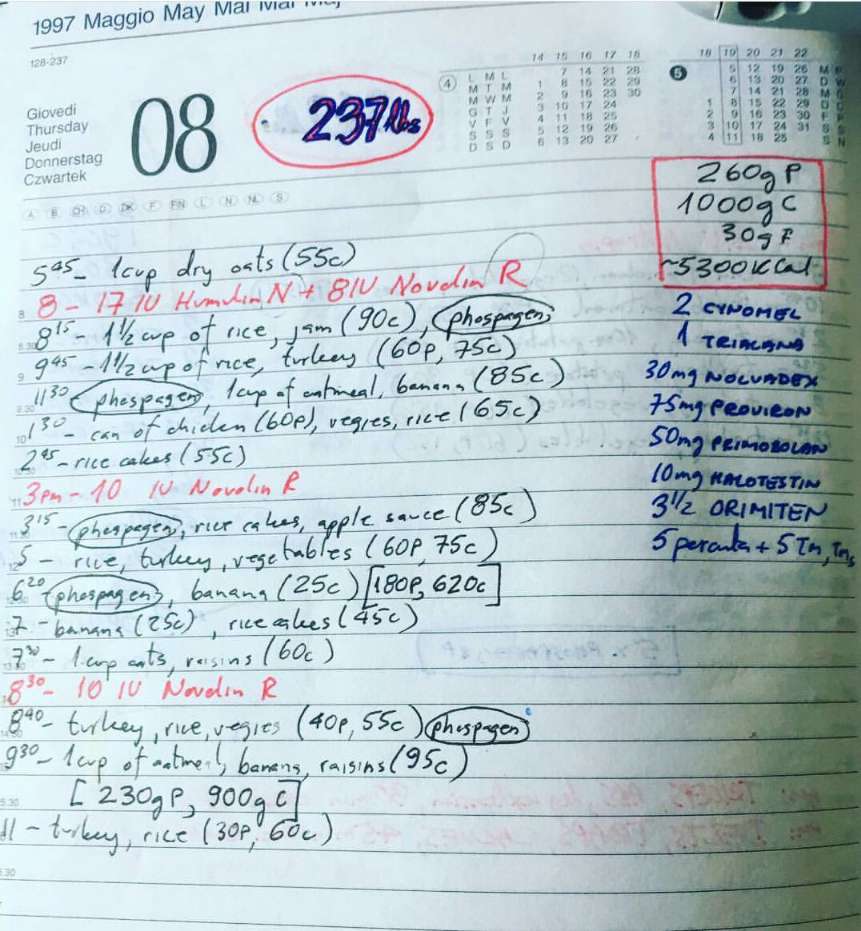 1997 Maggio May Mai
128-237
Giovedi
Thursday
Jeudi
Donnerstag
Czwartek
08
237 lbs
4
14 15 16 17 18
L M L 7 14 21 28
M T M 1 8 15 22 29
M W M 2 9 16 23 30
G T J 3 10 17 24
V F V 4 11 18 25
S S S 5 12 19 26
D S D 6 13 20 27
5
18 19 20 21 22
5 12 19 26
6 13 20 27
7 14 21 28
1 8 15 22 29
2 9 16 23 30
3 10 17 24 31
4 11 18 25
A B CH D DK F FIN L N NL S
260g P
1000g C
30g F
~5300 kcal
5 45 - 1cup dry oats (55c)
8 - 17 IU Humulin N + 8 IU Novolin R
8 15 - 1 1/2 cup of rice, jam (90c), phospagen
9 45 - 1 1/2 cup of rice, turkey (60p, 75c)
11 30 phospagen, 1cup of oatmeal, banana (85c)
1 30 - can of chicken (60p), vegies, rice (65c)
2 45 - rice cakes (55c)
3pm - 10 IU Novolin R
3 15 - phospagen, rice cakes, apple sauce (85c)
5 - rice, turkey, vegetables (60p, 75c)
6 20 - phospagen, banana (25c) [180p, 620c]
7 - banana (25c), rice cakes (45c)
7 30 - 1cup oats, raisins (60c)
8 30 - 10 IU Novolin R
8 40 - turkey, rice, vegies (40p, 55c) phospagen
9 30 - 1cup of oatmeal, banana, raisins (95c)
[230g P, 900g C]
11 - turkey, rice (30p, 60c)
2 CYNOMEL
1 TRIACANA
30mg NOLVADEX
75mg PROVIRON
50mg PRIMOBOLAN
10mg HALOTESTIN
3 1/2 ORIMITEN